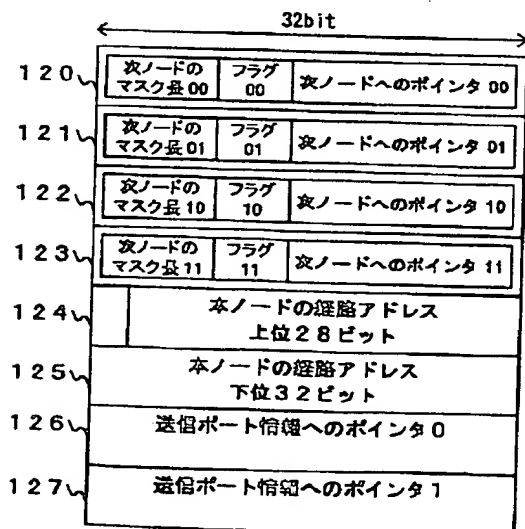 32bit
120
次ノードの
マスク長 00
フラグ
00
次ノードへのポインタ 00
121
次ノードの
マスク長 01
フラグ
01
次ノードへのポインタ 01
122
次ノードの
マスク長 10
フラグ
10
次ノードへのポインタ 10
123
次ノードの
マスク長 11
フラグ
11
次ノードへのポインタ 11
124
本ノードの経路アドレス
上位28ビット
125
本ノードの経路アドレス
下位32ビット
126
送信ポート情報へのポインタ0
127
送信ポート情報へのポインタ1